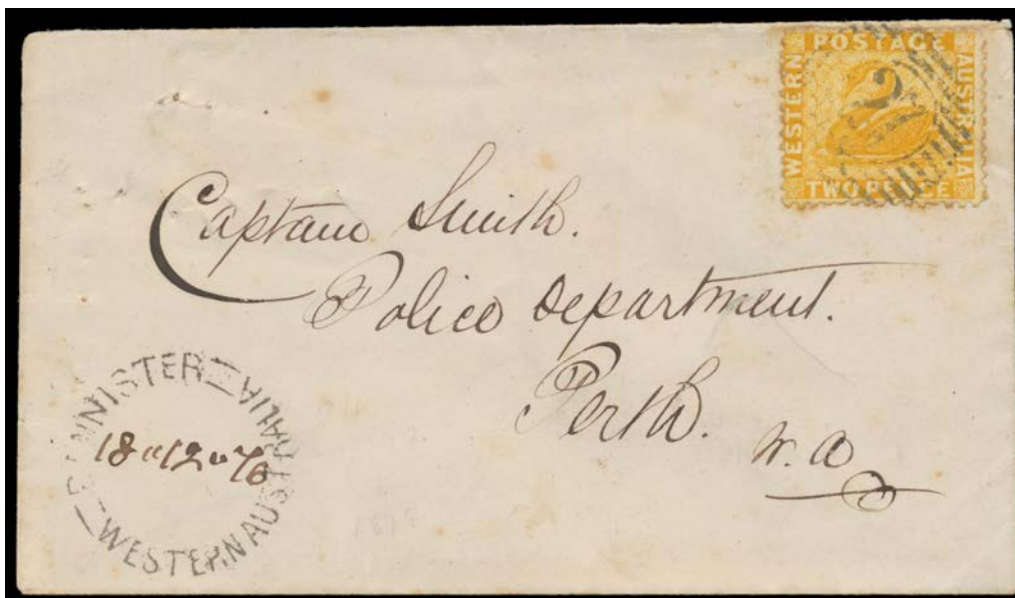 POSTAGE
WESTERN
AUSTRALIA
TWO PENCE
Captain Smith.
Police Department.
Perth.
W. A
BANNISTER
18"12"76
WESTERN AUSTRALIA